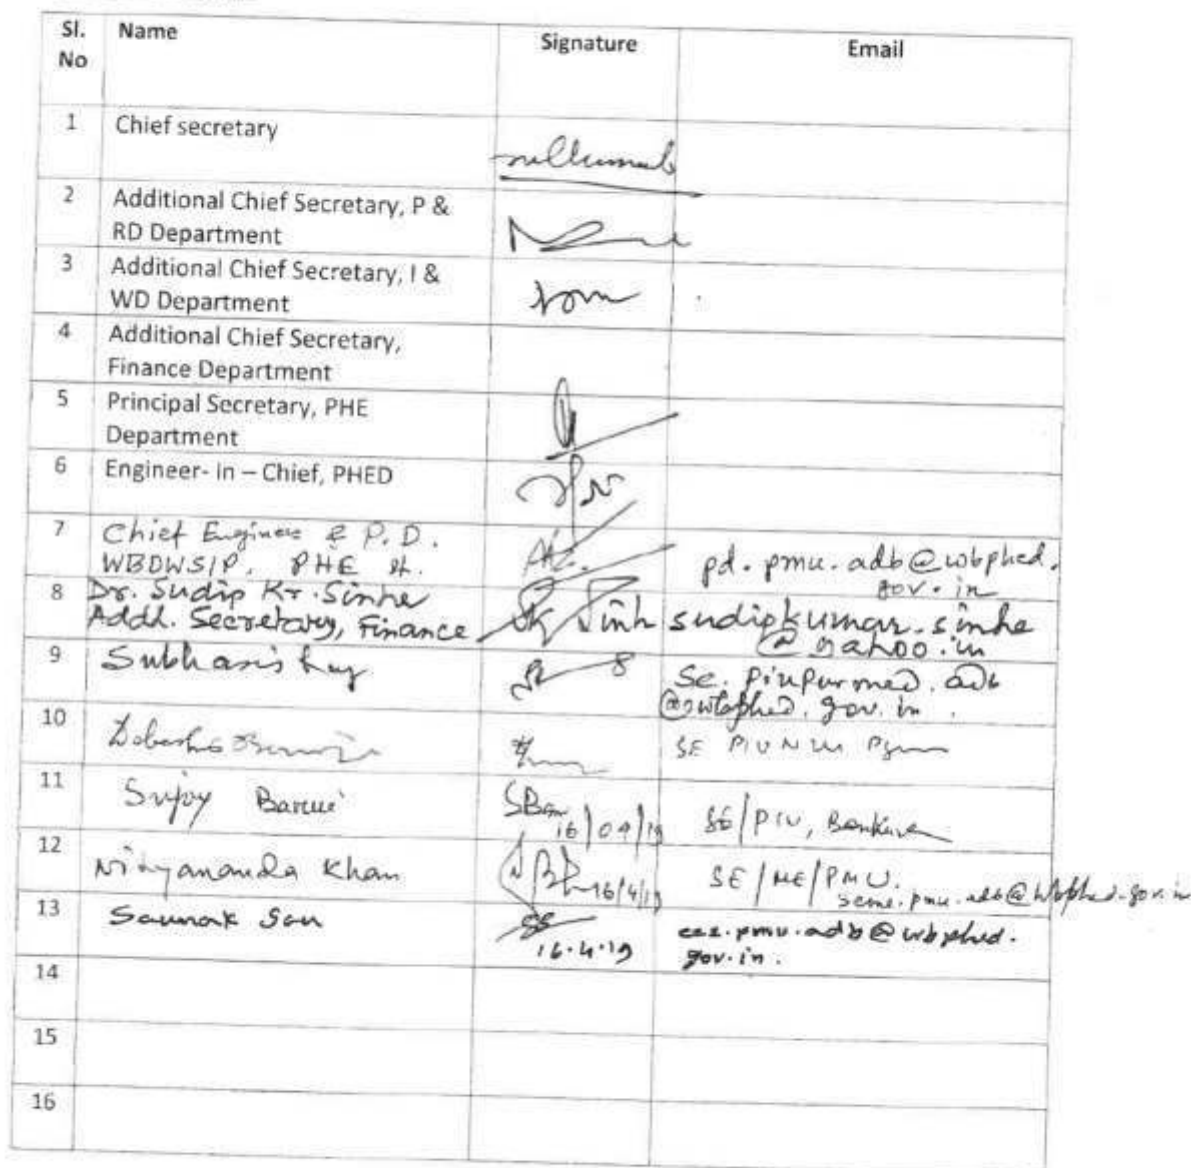 Sl. No Name Signature Email
1 Chief secretary
2 Additional Chief Secretary, P &
RD Department
3 Additional Chief Secretary, I &
WD Department
4 Additional Chief Secretary,
Finance Department
5 Principal Secretary, PHE
Department
6 Engineer- in – Chief, PHED
7 Chief Engineer & P.D.
WBDWSIP, PHE
pd.pmu.adb@wbphed.
gov.in
8 Dr. Sudip Kr. Sinha
Addl. Secretary, Finance
sudipkumar.sinha
@yahoo.in
9 Subhasis
se.
gov.in.
10 SE PIU
11 Srijoy Barui
16/04/19 SE/PIU, Bankura
12 Nityananda Khan
16/4/19 SE/ME/PMU.
seme.pmu.adb@wbphed.gov.in
13 Saunak Sau
16.4.19
pmu.adb@wbphed.
gov.in.
14
15
16